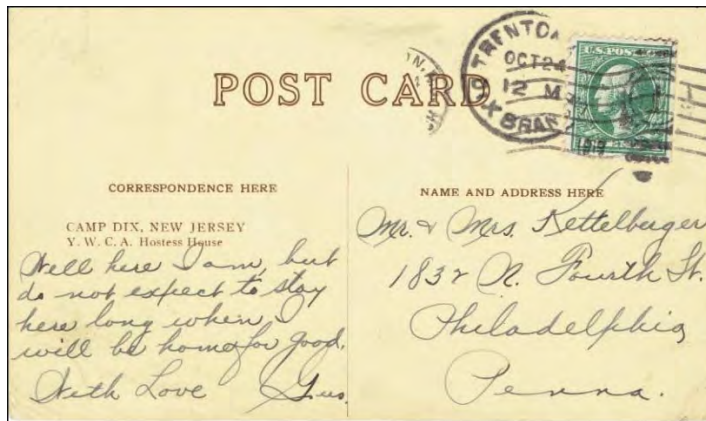 POST CARD
TRENTO
OCT 24
12 M
X BRAN
U.S. POST
CORRESPONDENCE HERE
CAMP DIX, NEW JERSEY
Y. W. C. A. Hostess House
Well here I am, but
do not expect to stay
here long when I
will be home for good.
With Love Gus.
NAME AND ADDRESS HERE
Mr. & Mrs. Kettelberger
1832 N. Fourth St.
Philadelphia
Penna.